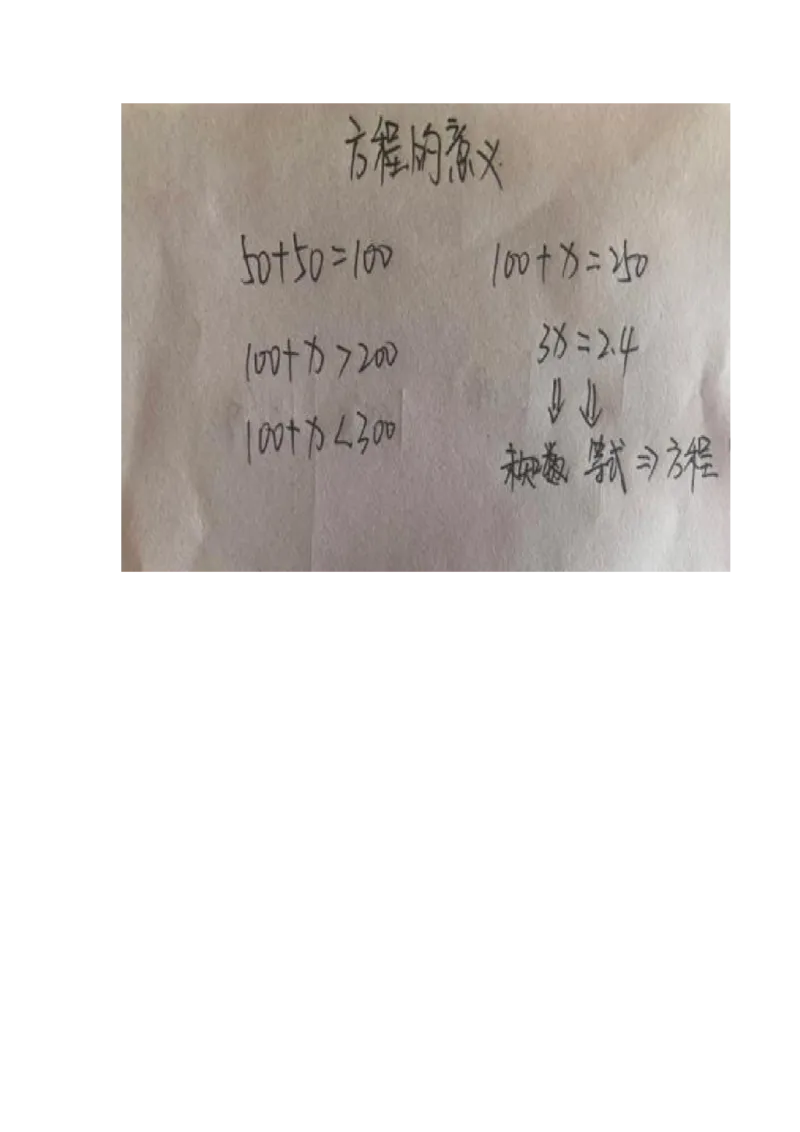 方程的意义
50+50=100 100+x=250
100+x>200 3x=2.4
⇓ ⇓
100+x<300
未知数 等式⇒方程